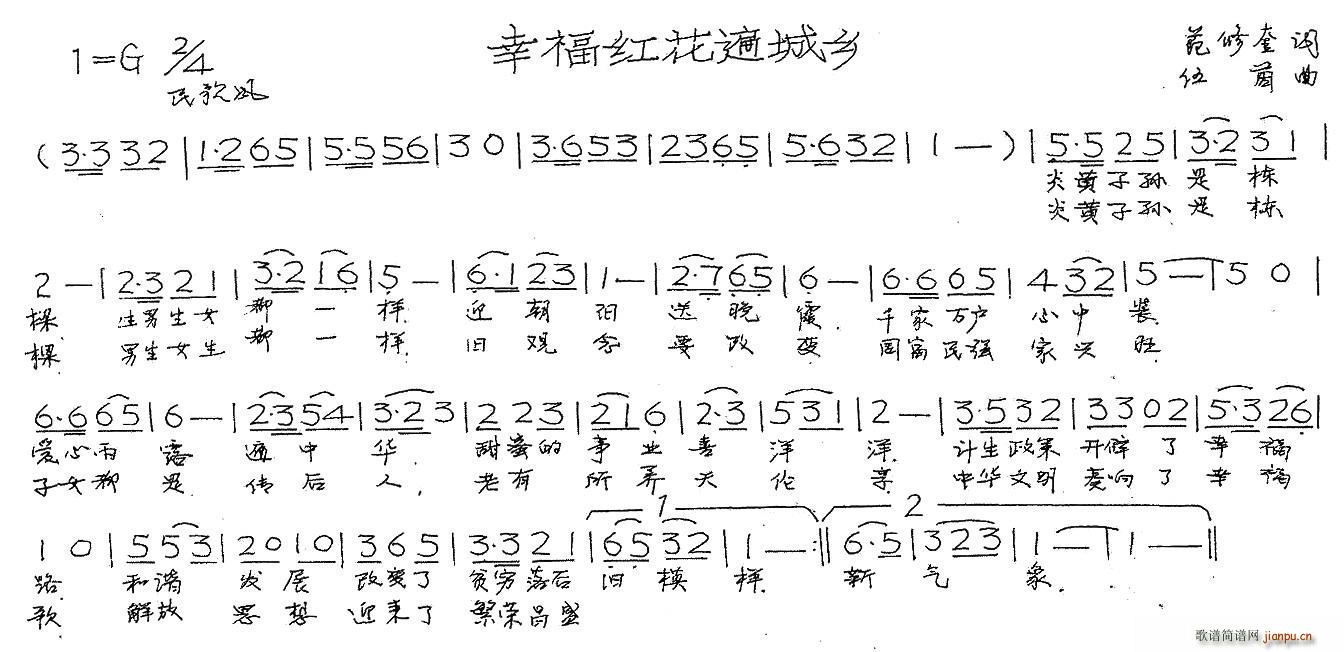 幸福红花遍城乡
1=G 2/4
民歌风
范修奎 词
伍 曲
( 3·3 3 2 | 1·2 6 5 | 5·5 5 6 | 3 0 | 3·6 5 3 | 2 3 6 5 | 5·6 3 2 | 1 — ) | 5·5 2 5 | 3·2 3 1 |
炎黄子孙 是 栋
炎黄子孙 是 栋
2 — | 2·3 2 1 | 3·2 1 6 | 5 — | 6·1 2 3 | 1 — | 2·7 6 5 | 6 — | 6·6 6 5 | 4 3 2 | 5 — | 5 0 |
棵 生男生女 都 一 样 迎 朝 阳 送 晚 霞 千家万户 心中 装
棵 男生女生 都 一 样 旧 观 念 要 改 变 国富民强 家兴 旺
6·6 6 5 | 6 — | 2·3 5 4 | 3·2 3 | 2 2 3 | 2 1 6 | 2·3 | 5 3 1 | 2 — | 3·5 3 2 | 3 3 0 2 | 5·3 2 6 |
爱心雨 露 遍 中 华 甜蜜的 事 业 喜 洋 洋 计生政策 开辟 了 幸 福
子女都 是 传 后 人, 老有 所 养 天 伦 享 中华文明 奏响 了 幸 福
1 0 | 5 5 3 | 2 0 1 0 | 3 6 5 | 3·3 2 1 | 1 6 5 3 2 | 1 — :|| 2 6·5 | 3 2 3 | 1 — | 1 — ||
路 和谐 发 展 改变了 贫穷落后 旧 模 样 新 气 象
歌 解放 思 想 迎来了 繁荣昌盛
歌谱简谱网 jianpu.cn